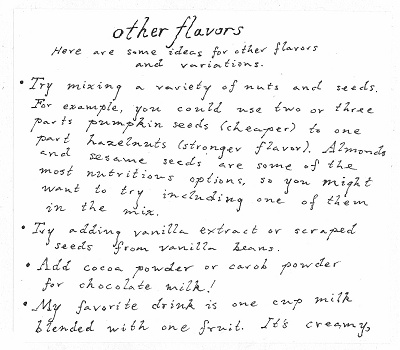 other flavors
Here are some ideas for other flavors
and variations.
• Try mixing a variety of nuts and seeds.
For example, you could use two or three
parts pumpkin seeds (cheaper) to one
part hazelnuts (stronger flavor). Almonds
and sesame seeds are some of the
most nutritious options, so you might
want to try including one of them
in the mix.
• Try adding vanilla extract or scraped
seeds from vanilla beans.
• Add cocoa powder or carob powder
for chocolate milk!
• My favorite drink is one cup milk
blended with one fruit. It's creamy,